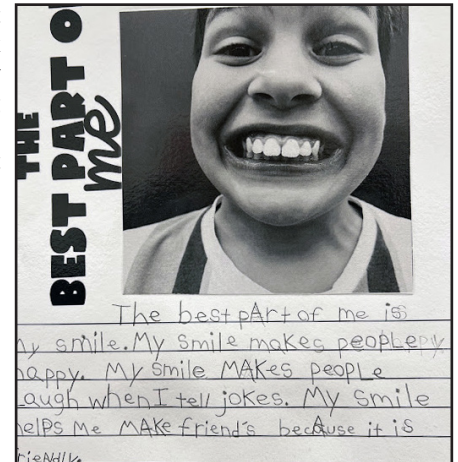 THE
BEST PART O
me
The best pArt of me is
y smile. My smile makes people
appy. My smile MAKes peopLe
augh when I tell jokes. My smile
eLPs Me MAKe friend's becAuse it is
rieNdLy.